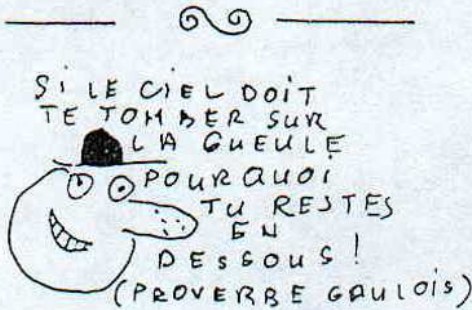 SI LE CIEL DOIT
TE TOMBER SUR
LA GUEULE
POURQUOI
TU RESTES
EN
DESSOUS !
(PROVERBE GAULOIS)